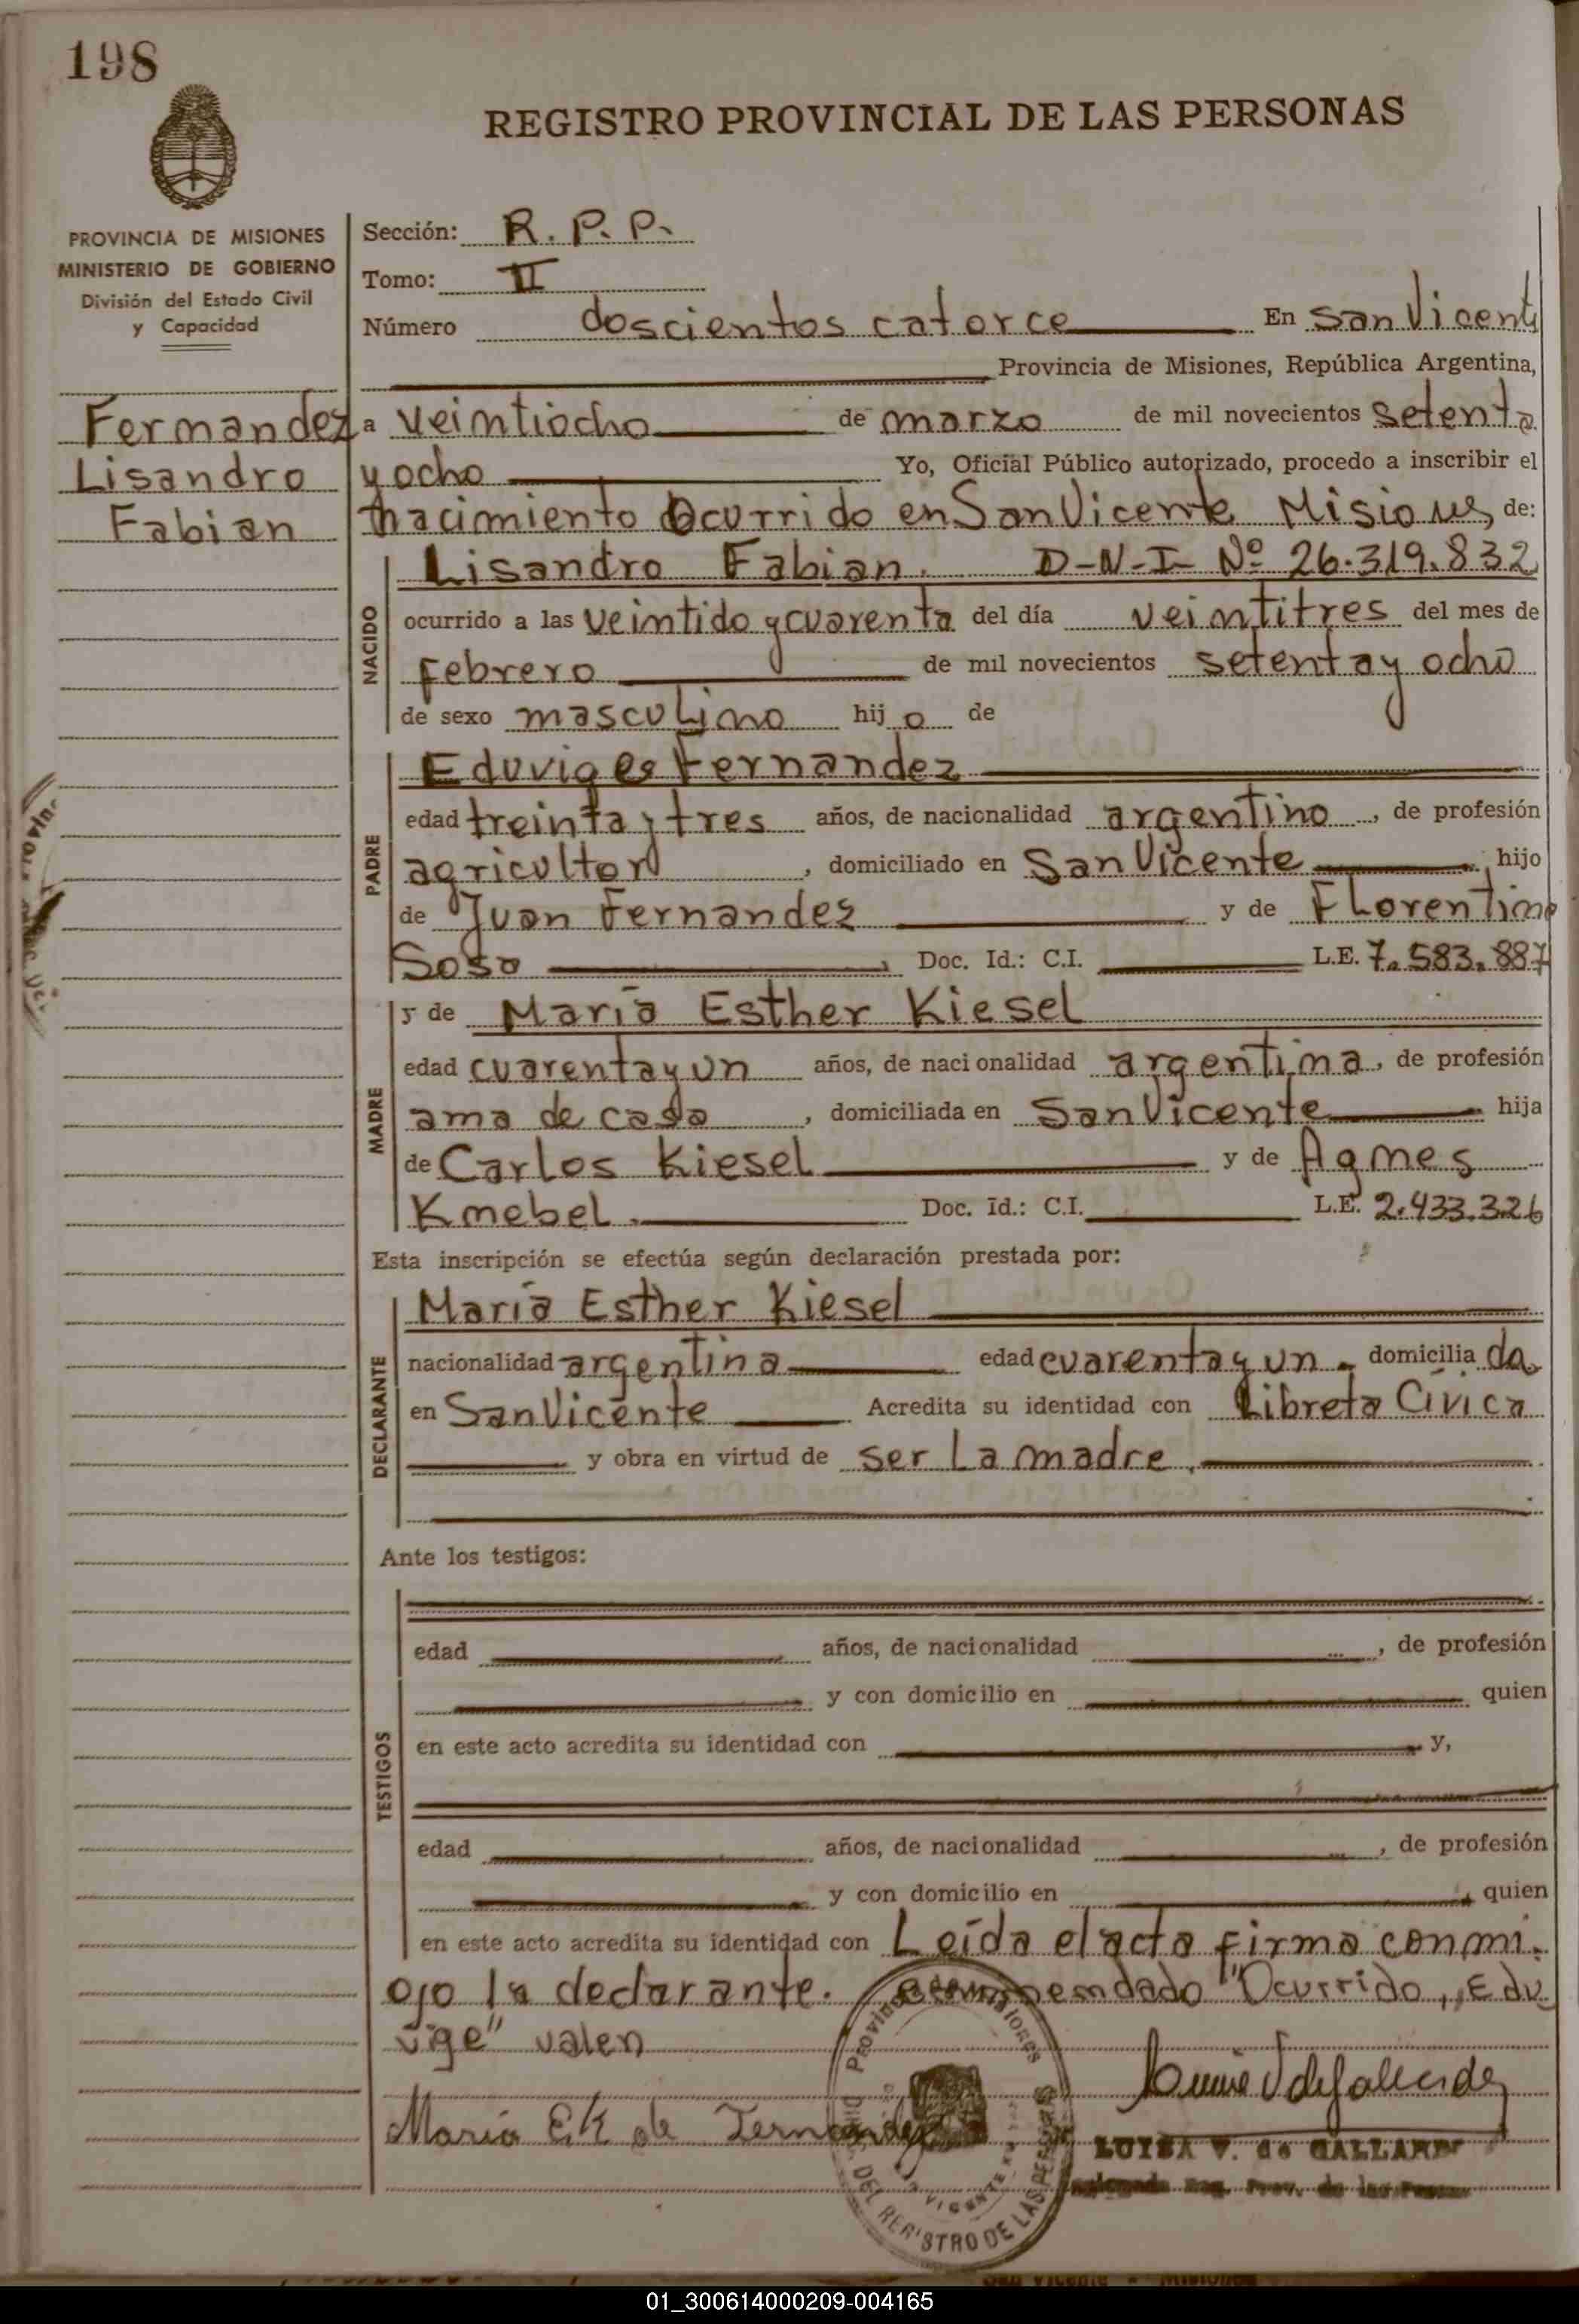 198
REGISTRO PROVINCIAL DE LAS PERSONAS
PROVINCIA DE MISIONES
MINISTERIO DE GOBIERNO
División del Estado Civil
y Capacidad
Fernandez
Lisandro
Fabian
Sección: R. P. P.
Tomo: II
Número doscientos catorce En San Vicente
Provincia de Misiones, República Argentina,
a veintiocho de marzo de mil novecientos setenta
y ocho Yo, Oficial Público autorizado, procedo a inscribir el
nacimiento Ocurrido en San Vicente Misiones, de:
NACIDO
Lisandro Fabian. D-N-I- Nº 26.319.832
ocurrido a las veintido y cuarenta del día veintitres del mes de
febrero de mil novecientos setenta y ocho
de sexo masculino hijo de
PADRE
Eduviges Fernandez
edad treinta y tres años, de nacionalidad argentino, de profesión
agricultor, domiciliado en San Vicente hijo
de Juan Fernandez y de Florentina
Sosa Doc. Id.: C.I. L.E. 7.583.887
MADRE
y de María Esther Kiesel
edad cuarenta y un años, de nacionalidad argentina, de profesión
ama de casa, domiciliada en San Vicente hija
de Carlos Kiesel y de Agnes
Knebel. Doc. Id.: C.I. L.E. 2.433.326
Esta inscripción se efectúa según declaración prestada por:
DECLARANTE
María Esther Kiesel
nacionalidad argentina edad cuarenta y un domicilia da
en San Vicente Acredita su identidad con Libreta Cívica
y obra en virtud de ser la madre.
Ante los testigos:
TESTIGOS
edad años, de nacionalidad , de profesión
y con domicilio en quien
en este acto acredita su identidad con y,
edad años, de nacionalidad , de profesión
y con domicilio en quien
en este acto acredita su identidad con Leída el acta firma conmi-
ojo la declarante. enmendado "Ocurrido,, Edu
vige" valen
María E K de Fernandez
LUISA V. de GALLARDO
DEL REGISTRO DE LAS PERSONAS
01_300614000209-004165